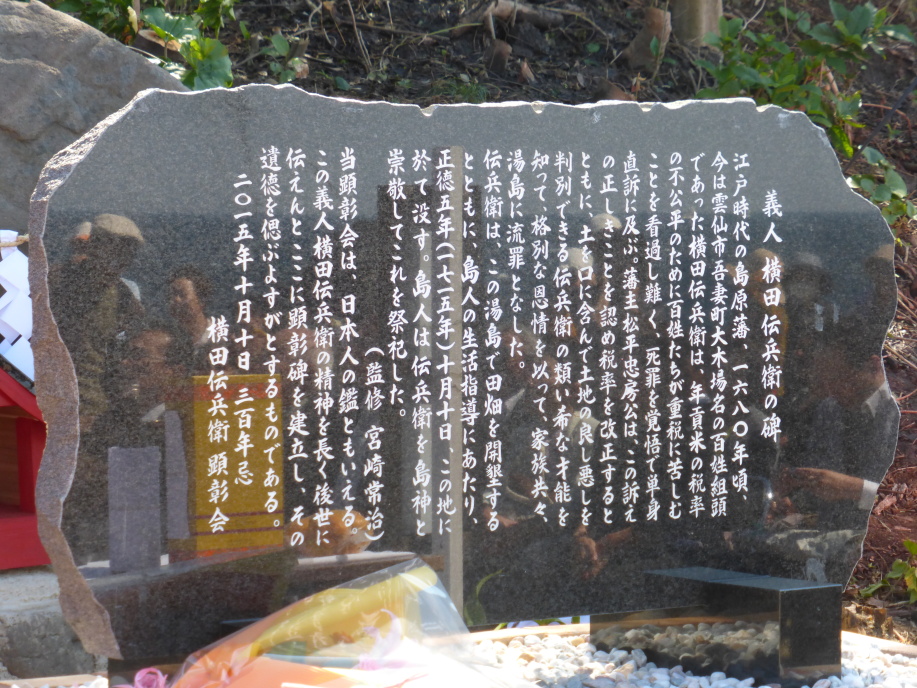 義人 横田伝兵衛の碑
江戸時代の島原藩、一六八〇年頃、
今は雲仙市吾妻町大木場名の百姓組頭
であった横田伝兵衛は、年貢米の税率
の不公平のために百姓たちが重税に苦しむ
ことを看過し難く、死罪を覚悟で単身
直訴に及ぶ。藩主松平忠房公は、この訴え
の正しきことを認め税率を改正すると
ともに、土を口に含んで土地の良し悪しを
判別できる伝兵衛の類い布な才能を
知って、格別な恩情を以って家族共々、
湯島に流罪となした。
伝兵衛は、この湯島で田畑を開墾する
とともに、島人の生活指導にあたり、
正徳五年(一七一五年)十月十日、この地に
於て没す。島人は伝兵衛を島神と
崇敬してこれを祭祀した。
(監修 宮崎常治)
当顕彰会は、日本人の鑑ともいえる。
この義人横田伝兵衛の精神を長く後世に
伝えんとここに顕彰碑を建立し、その
遺徳を偲ぶよすがとするものである。
二〇一五年十月十日 三百年忌
横田伝兵衛顕彰会